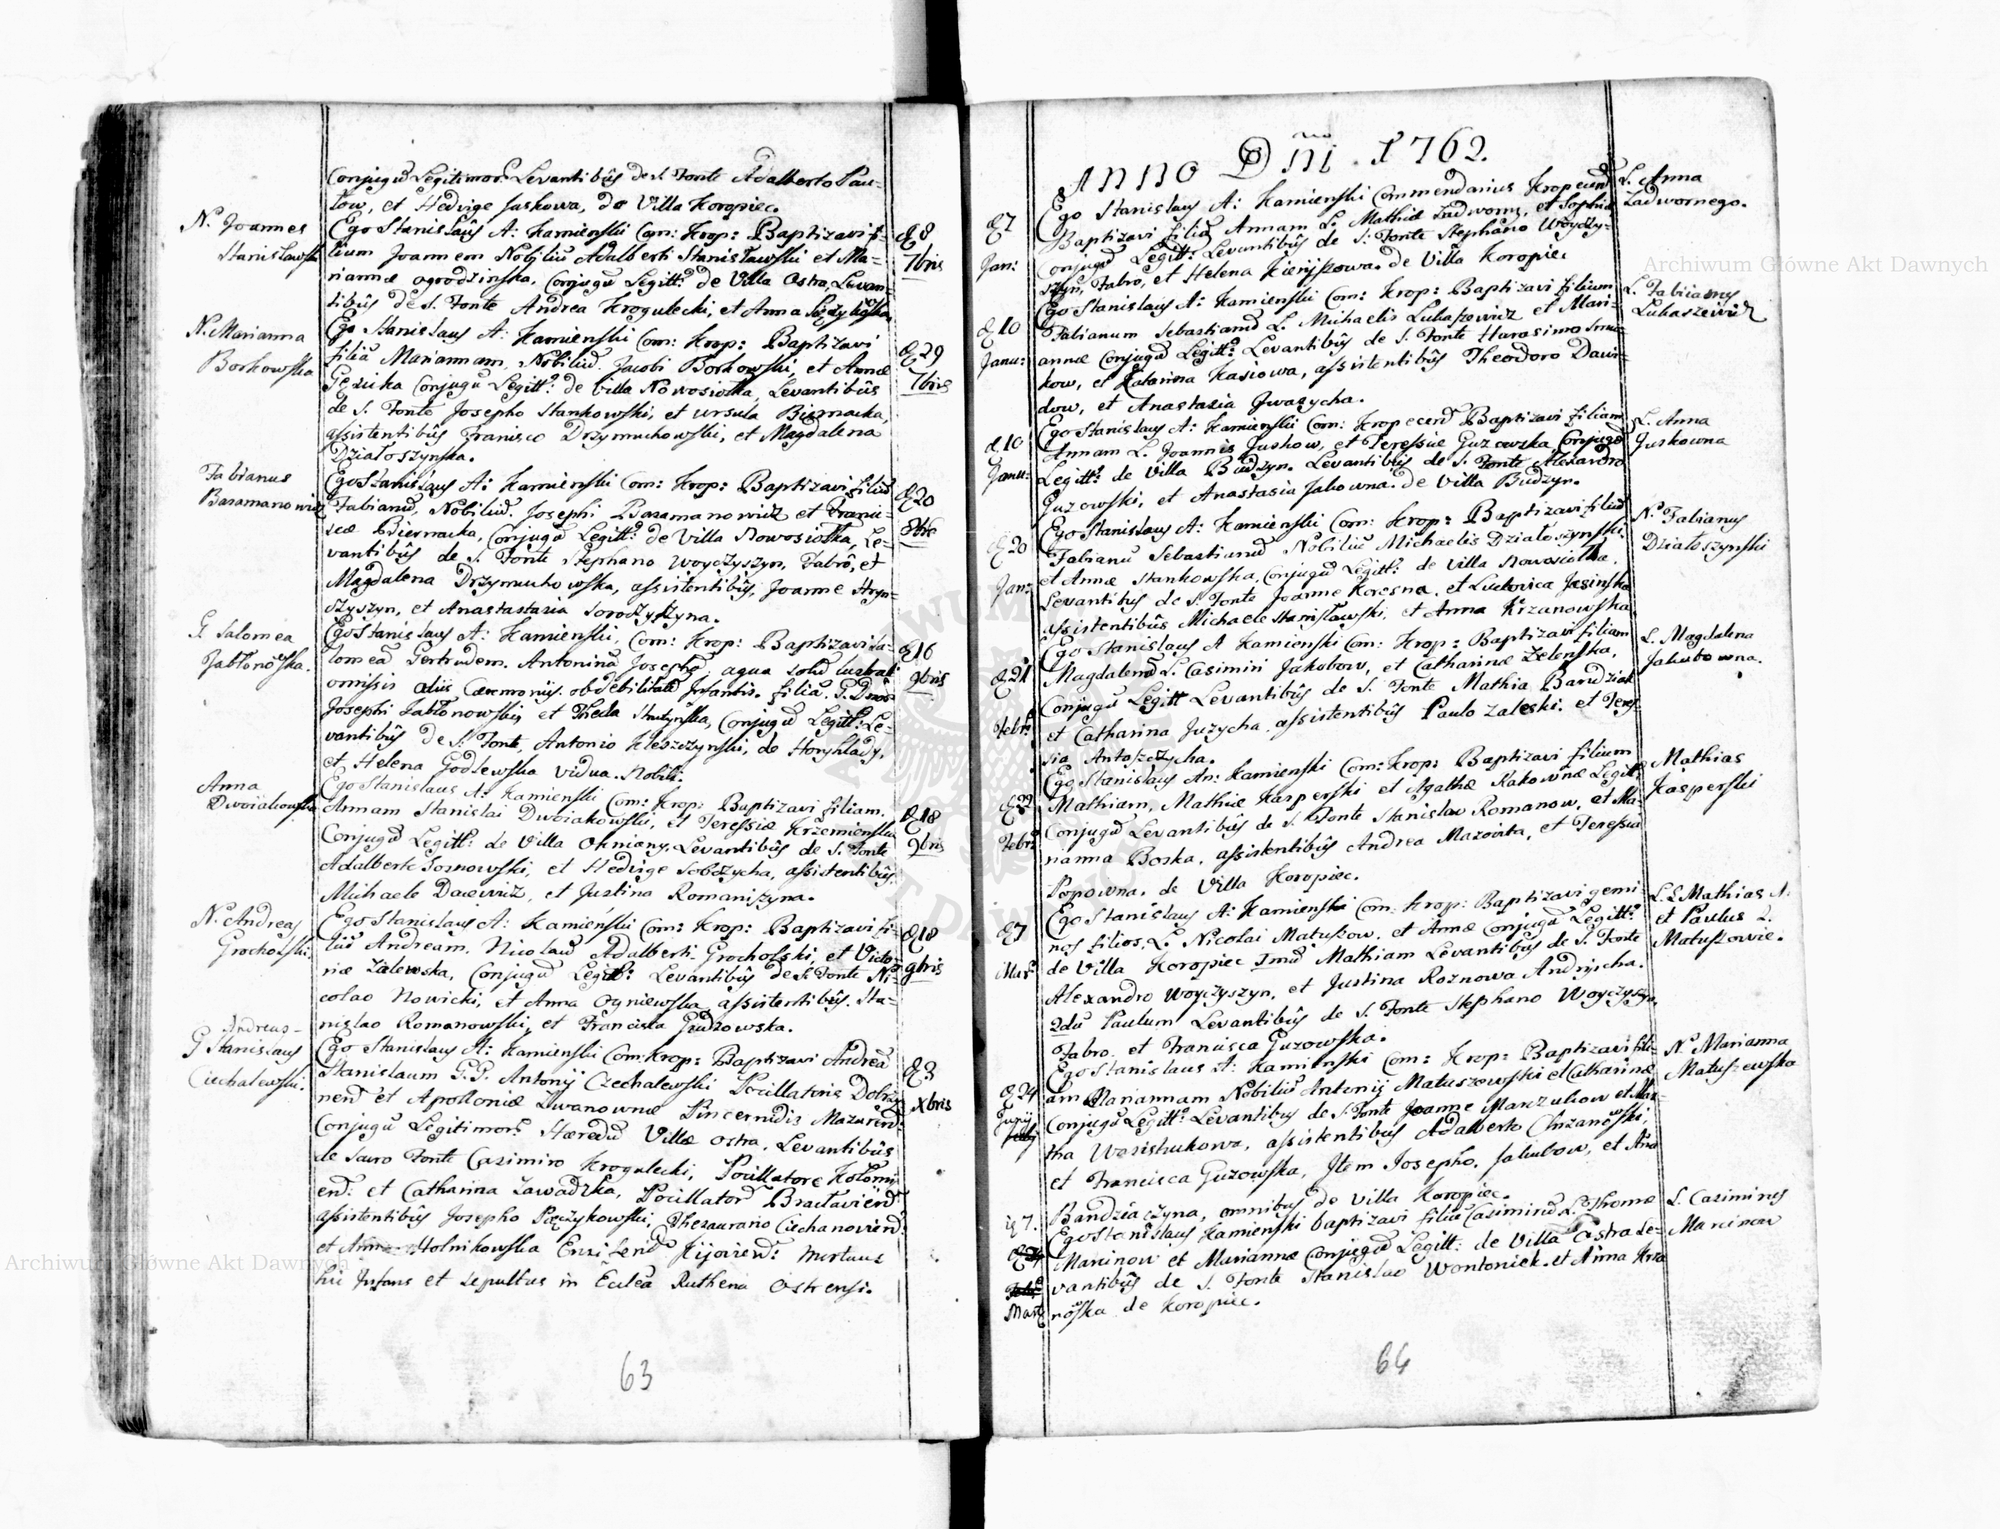 Conjugū Legitimor: Levantibūs de S. Fonte Adalberto Pau-
low, et Hedvige Juskowa, de Villa Koropiec.
N. Joannes
Stanisławski
Ego Stanislaūs A: Kamienski Com: Krop: Baptizavi fi-
lium Joannem Nobiliū Adalberti Stanisławski et Ma-
riannæ Ogrodzinska, Conjugū Legitt: de Villa Ostra, Levan-
tibūs de S. Fonte Andrea Krogulecki, et Anna
D 8
7bris
N. Marianna
Borkowska
Ego Stanislaus A: Kamienski Com: Krop: Baptizavi
filiā Mariannam, Nobiliū Jacobi Borkowski, et Annæ
Conjugū Legitt: de Villa Nowosiołka, Levantibūs
de S. Fonte Josepho Stankowski, et Ursula Biernacka,
assistentibūs Francisco Drzymuchowski, et Magdalena
Działoszynska.
D 29
7bris
Fabianus
Baramanowicz
Ego Stanislaus A: Kamienski Com: Krop: Baptizavi filiū
Fabianū, Nobiliū Josephi Baramanowicz et Franci-
scæ Biernacka, Conjugū Legitt: de Villa Nowosiołka, Le-
vantibūs de S. Fonte Stephano Woyczyszyn, Fabrô, et
Magdalena Drzymuchowska, assistentibūs, Joanne Hryn-
czyszyn, et Anastastaria
D 20
8bris
G. Salomea
Jabłonowska.
Ego Stanislaus A: Kamienski, Com: Krop: Baptizavi Sa-
lomeā Gertrudem, Antoninā Josephā, aqua solū lustrali
omissis aliis Cæremoniis ob debilitatē Infantis. filiā, G. Dnor
Josephi Jabłonowski, et Thecla Conjugū Legitt: Le-
vantibūs de S. Fonte, Antonio Kleszczynski, de Horyhlady,
et Helena Godlewska Vidua. Nobili.
D 16
9bris
Anna
Dwoiakowska
Ego Stanislaus A: Kamienski Com: Krop: Baptizavi filiam
Annam Stanislai Dwoiakowski, et Teressiæ Krzemienska
Conjugū Legitt: de Villa Ohniany. Levantibūs de S. Fonte
Adalberte Sosnowski, et Hedvige Sobczycha, assistentibūs
Michaele Dacewicz, et Justina Romaniszyna.
D 18
9bris
N. Andreas
Grocholski.
Ego Stanislaus A: Kamienski Com: Krop: Baptizavi fi-
liū Andream, Nicolaū Adalberti Grocholski, et Victo-
riæ Zalewska, Conjugū Legitt: Levantibūs de S. Fonte Ni-
colao Nowicki, et Anna Ogniewska assistentibūs. Sta-
nislao Romanowski, et Francisca Guzowska.
D 18
9bris
Andreas -
G Stanislaus
Ciechalewski.
Ego Stanislaus A: Kamienski Com: Krop: Baptizavi Andreā
Stanislaum G.G. Antonij Czechalewski Pocillatoris Dobrzy-
nen̄: et Apolloniæ Iwanownæ Pincernidis Mazuren̄:
Conjugū Legitimor: Hæredū Villæ Ostra. Levantibūs
de Sacro Fonte Casimiro Krogulecki, Pocillatore Kołomi-
en̄: et Catharina Zawadzka, Pocillator: Bracłavien̄:
assistentibūs Josepho Thesaurario Ciechanovien̄:
et Anna Holnikowska Ensiferid: Kijovien̄: Mortuus
hic Infans et sepultus in Ecclā Ruthena Ostrensi.
D 3
Xbris
63
Anno Dni 1762.
D 7
Jan:
Ego Stanislaus A: Kamienski Commendarius Kropecen̄
Baptizavi filiā Annam L. Mathiæ Zadworny, et Sophiæ
Conjugū Legitt: Levantibūs de S: Fonte Stephano Woyczy-
szyn, Fabro, et Helena Kieryszowa. de Villa Koropiec
L. Anna
Zadwornego.
D 10
Janu:
Ego Stanislaus A: Kamienski Com: Krop: Baptizavi filium
Fabianum Sebastianū L. Michaelis Lukaszewicz et Mari-
annæ Conjugū Legitt: Levantibūs de S. Fonte Harasimo
kow, et Katarina Kasiowa, assistentibūs Theodoro Dawi-
dow, et Anastasia Iwasycha.
L. Fabianus
Lukaszewicz
D 10
Janu:
Ego Stanislaus A: Kamienski Com: Kropecen̄ Baptizavi filiam
Annam L. Joannis Juskow, et Teressiæ Guzowska Conjugū
Legitt: de Villa Budzyn. Levantibūs de S. Fonte Alexandro
Guzowski, et Anastasia Jakowna. de Villa Budzyn.
L. Anna
Juskowna
D 20
Jan:
Ego Stanislaus A: Kamienski Com: Krop: Baptizavi filiū
Fabianū Sebastianū Nobiliū Michaelis Działoszynski
et Annæ Stankowska, Conjugū Legitt: de Villa Nowosiołka.
Levantibus de S. Fonte Joanne Koresna, et Ludovica Jasinska
Assistentibūs Michaele Stanisławski, et Anna Krzanowska
N. Fabianus
Działoszynski
D 21
Febr:
Ego Stanislaus A Kamienski Com: Krop: Baptizavi filiam
Magdalenā L. Casimiri Jakubow, et Catharinæ Zelenska,
Conjugū Legitt Levantibūs de S. Fonte Mathia Bandziak
et Catharina Juzycha, assistentibūs Paulo Zaleski, et Tere-
sia Antoszczycha.
L. Magdalena
Jakubowna.
D 22
Febr:
Ego Stanislaus An: Kamienski Com: Krop: Baptizavi filium
Mathiam, Mathiæ Kasperski et Agathæ Kakownæ Legitt:
Conjugū Levantibūs de S. Fonte Stanislao Romanow, et Ma-
rianna Boska, assistentibūs Andrea Mazovita, et Teressia
Popowna. de Villa Koropiec.
Mathias
Kasperski
D 7
Mar:
Ego Stanislaus A: Kamienski Com: Krop: Baptizavi gemi-
nos filios, L. Nicolai Matuszow, et Annæ Conjugū Legitt:
de Villa Koropiec 1mū Mathiam Levantibūs de S. Fonte
Alexandro Woyczyszyn, et Justina Roznowa Andrijscha.
2dū Paulum Levantibūs de S. Fonte Stephano Woyczyszyn,
Fabro, et Francisca Guzowska.
L.L. Mathias L.
et Paulus L.
Matuszowie.
D 24
Junij
Ego Stanislaus A: Kamienski Com: Krop: Baptizavi fili-
am Mariannam Nobiliū Antonij Matuszewski et Catharinæ
Conjugū Legitt: Levantibus de S. Fonte Joanne Marzukow et Mar-
tha Wasiskukowa, assistentibus Adalberto Chrzanowski,
et Francisca Guzowska, Item Josepho Jakubow, et Anna
Bandziaczyna, omnibus de Villa Koropiec.
N. Marianna
Matuszewska
17.
Marti
Ego Stanislaus Kamienski baptizavi filiū Casimirū L. Thomæ
Marinow et Mariannæ Conjugū Legitt: de Villa Ostra Le-
vantibūs de S. Fonte Stanislao Wontoniek, et Anna Krza-
nowska de Koropiec.
L. Casimirus
Marinow
64
Archiwum Główne Akt Dawnych
Archiwum Główne Akt Dawnych